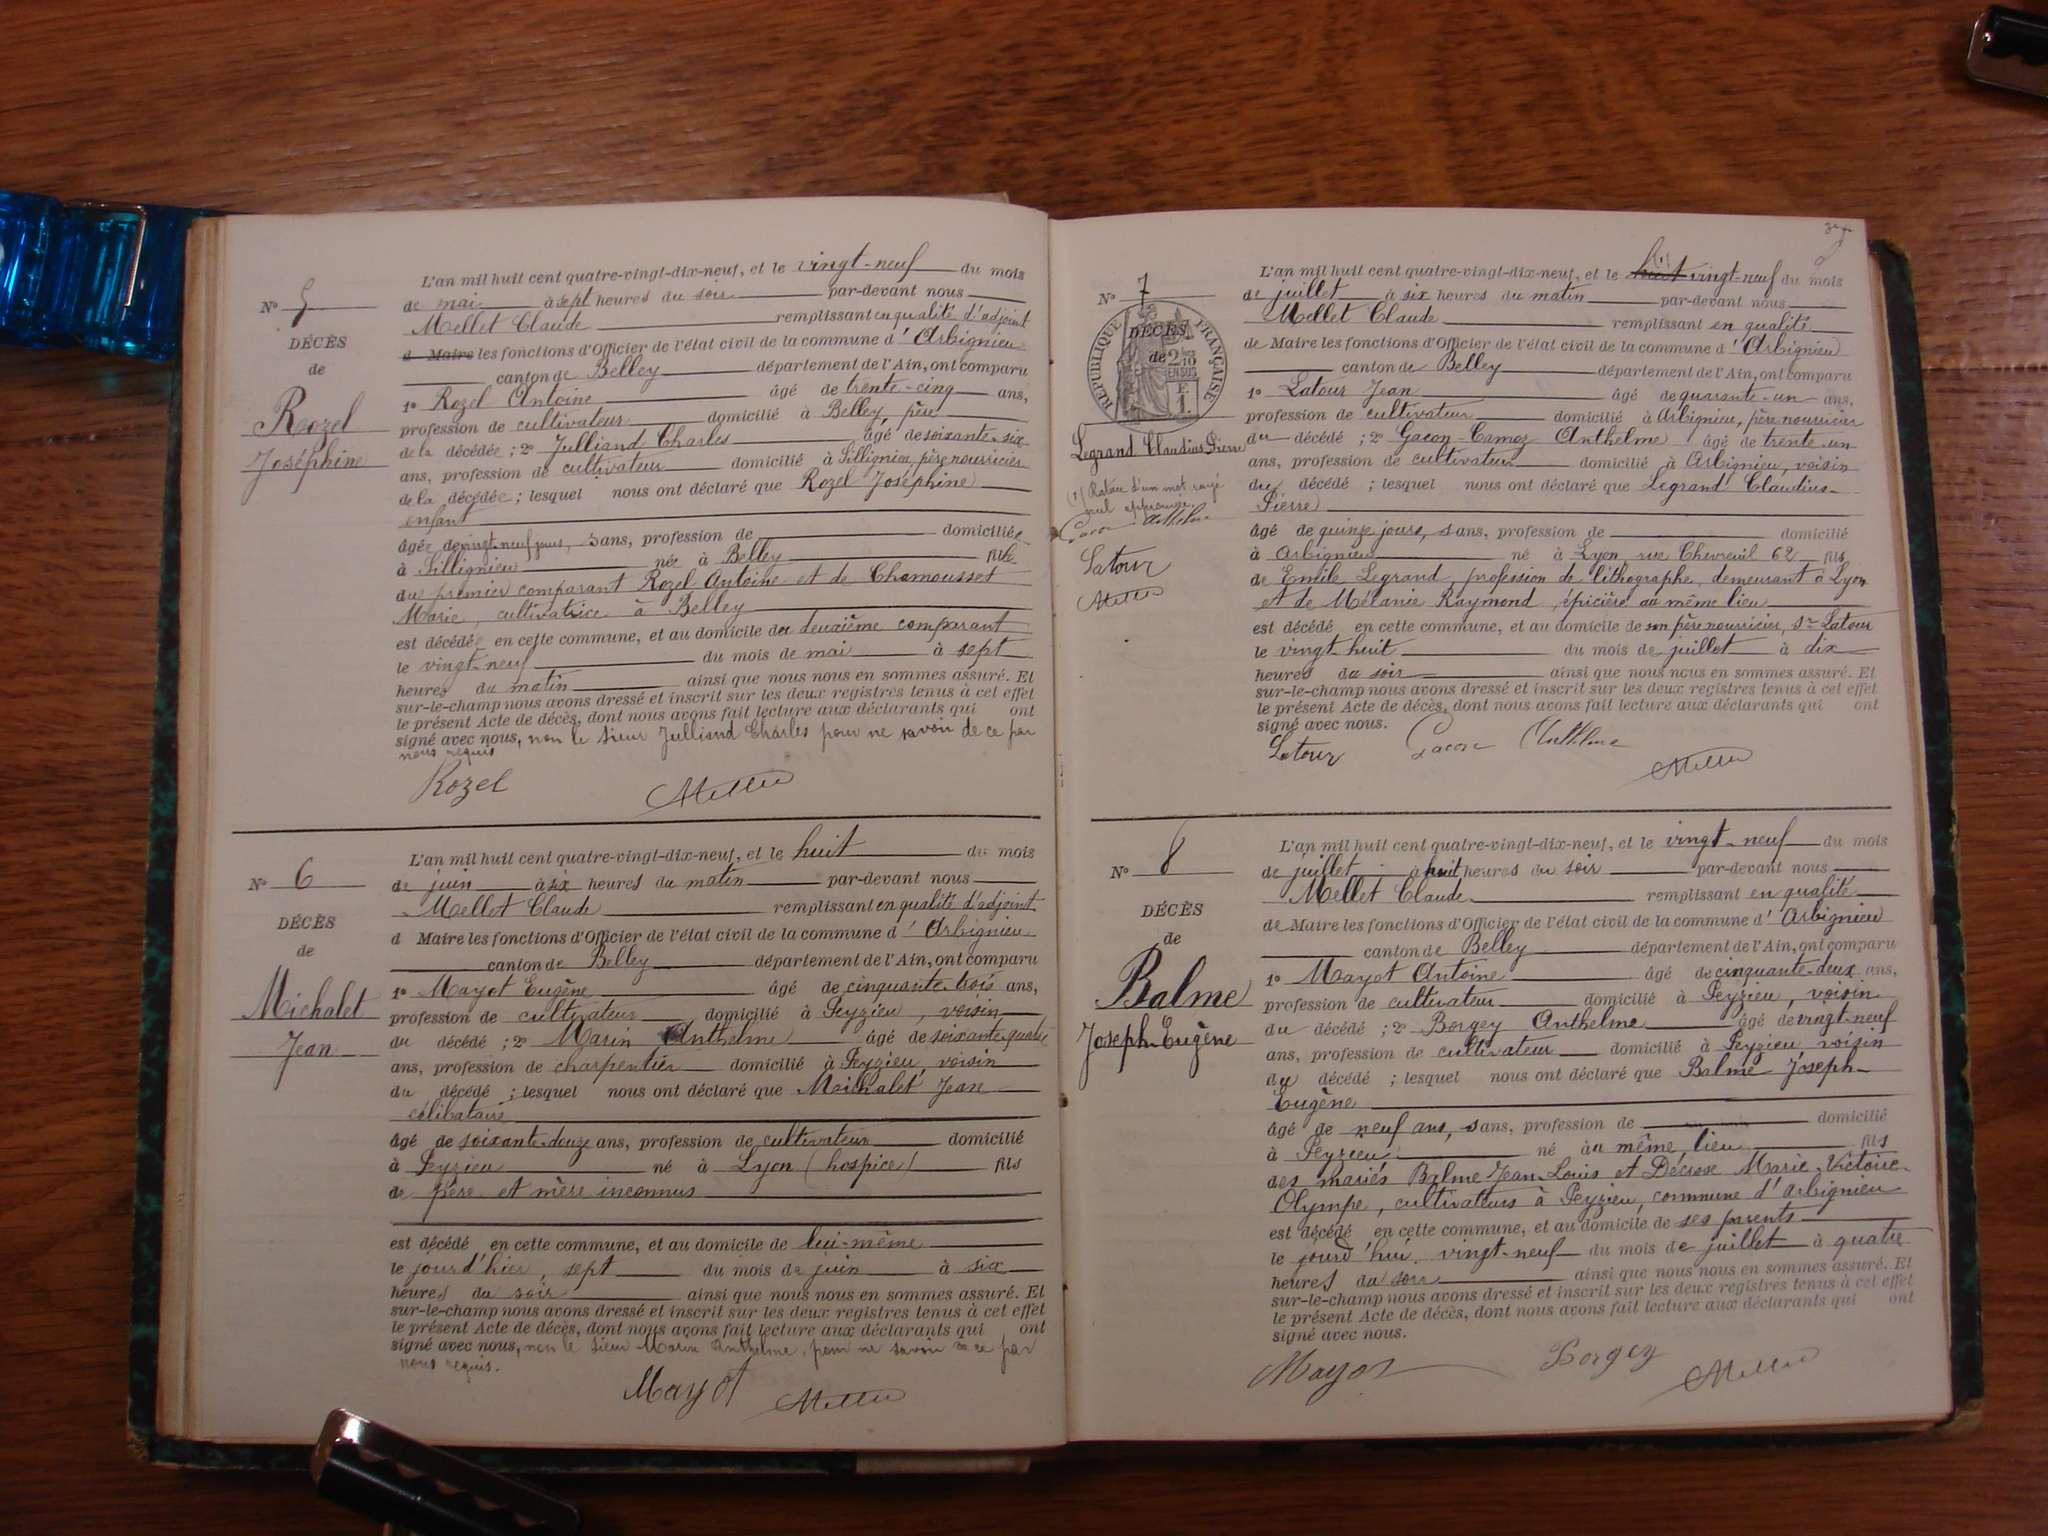 N° 5
DÉCÈS
de
Rozel
Joséphine
L'an mil huit cent quatre-vingt-dix-neuf, et le vingt-neuf du mois
de mai à sept heures du soir par-devant nous
Mellet Claude remplissant en qualité d'adjoint
d Maire les fonctions d'Officier de l'état civil de la commune d'Arbignieu
canton de Belley département de l'Ain, ont comparu
1° Rozel Antoine âgé de trente-cinq ans,
profession de cultivateur domicilié à Belley, père
de la décédée ; 2° Julliand Charles âgé de soixante-six
ans, profession de cultivateur domicilié à Sillignieu, père nourricier
de la décédée ; lesquel nous ont déclaré que Rozel Joséphine
enfant
âgée de vingt-neuf jours, sans, profession de domiciliée
à Sillignieu née à Belley fille
du premier comparant Rozel Antoine et de Chamousset
Marie, cultivatrice à Belley
est décédée en cette commune, et au domicile du deuxième comparant
le vingt-neuf du mois de mai à sept
heures du matin ainsi que nous nous en sommes assuré. Et
sur-le-champ nous avons dressé et inscrit sur les deux registres tenus à cet effet
le présent Acte de décès, dont nous avons fait lecture aux déclarants qui ont
signé avec nous, non le sieur Julliand Charles pour ne savoir de ce par
nous requis
Rozel Mellet
N° 6
DÉCÈS
de
Michalet
Jean
L'an mil huit cent quatre-vingt-dix-neuf, et le huit du mois
de juin à six heures du matin par-devant nous
Mellet Claude remplissant en qualité d'adjoint
d Maire les fonctions d'Officier de l'état civil de la commune d'Arbignieu
canton de Belley département de l'Ain, ont comparu
1° Mayot Eugène âgé de cinquante trois ans,
profession de cultivateur domicilié à Peyzieu, voisin
du décédé ; 2° Marin Anthelme âgé de soixante-quatre
ans, profession de charpentier domicilié à Peyzieu, voisin
du décédé ; lesquel nous ont déclaré que Michalet Jean
célibataire
âgé de soixante-douze ans, profession de cultivateur domicilié
à Peyzieu né à Lyon (hospice) fils
de père et mère inconnus
est décédé en cette commune, et au domicile de lui-même
le jour d'hier, sept du mois de juin à six
heures du soir ainsi que nous nous en sommes assuré. Et
sur-le-champ nous avons dressé et inscrit sur les deux registres tenus à cet effet
le présent Acte de décès, dont nous avons fait lecture aux déclarants qui ont
signé avec nous, non le sieur Marin Anthelme, pour ne savoir de ce par
nous requis.
Mayot Mellet
N° 7
RÉPUBLIQUE FRANÇAISE
DÉCÈS
de
2/10 EN SUS
F. 1.
Legrand Claudius Pierre
(1) Rature d'un mot rayé
nul approuvée
Gacon Anthelme
Latour
Mellet
L'an mil huit cent quatre-vingt-dix-neuf, et le huit (1) vingt-neuf du mois
de juillet à six heures du matin par-devant nous
Mellet Claude remplissant en qualité
de Maire les fonctions d'Officier de l'état civil de la commune d'Arbignieu
canton de Belley département de l'Ain, ont comparu
1° Latour Jean âgé de quarante-un ans,
profession de cultivateur domicilié à Arbignieu, père nourricier
du décédé ; 2° Gacon-Camoz Anthelme âgé de trente-un
ans, profession de cultivateur domicilié à Arbignieu, voisin
du décédé ; lesquel nous ont déclaré que Legrand Claudius-
Pierre
âgé de quinze jours, sans, profession de domicilié
à Arbignieu né à Lyon, rue Chevreuil 62 fils
de Emile Legrand, profession de lithographe, demeurant à Lyon
et de Mélanie Raymond, épicière au même lieu
est décédé en cette commune, et au domicile de son père nourricier, Sr Latour
le vingt-huit du mois de juillet à dix
heures du soir ainsi que nous nous en sommes assuré. Et
sur-le-champ nous avons dressé et inscrit sur les deux registres tenus à cet effet
le présent Acte de décès, dont nous avons fait lecture aux déclarants qui ont
signé avec nous.
Latour Gacon Anthelme Mellet
N° 8
DÉCÈS
de
Balme
Joseph-Eugène
L'an mil huit cent quatre-vingt-dix-neuf, et le vingt-neuf du mois
de juillet à huit heures du soir par-devant nous
Mellet Claude remplissant en qualité
de Maire les fonctions d'Officier de l'état civil de la commune d'Arbignieu
canton de Belley département de l'Ain, ont comparu
1° Mayot Antoine âgé de cinquante-deux ans,
profession de cultivateur domicilié à Peyzieu, voisin
du décédé ; 2° Borgey Anthelme âgé de vingt-neuf
ans, profession de cultivateur domicilié à Peyzieu voisin
du décédé ; lesquel nous ont déclaré que Balme Joseph-
Eugène
âgé de neuf ans, sans, profession de domicilié
à Peyzieu né au même lieu fils
des mariés Balme Jean-Louis et Décroze Marie-Victoire-
Olympe, cultivateurs à Peyzieu, commune d'Arbignieu
est décédé en cette commune, et au domicile de ses parents
le jourd'hui vingt-neuf du mois de juillet à quatre
heures du soir ainsi que nous nous en sommes assuré. Et
sur-le-champ nous avons dressé et inscrit sur les deux registres tenus à cet effet
le présent Acte de décès, dont nous avons fait lecture aux déclarants qui ont
signé avec nous.
Mayot Borgey Mellet